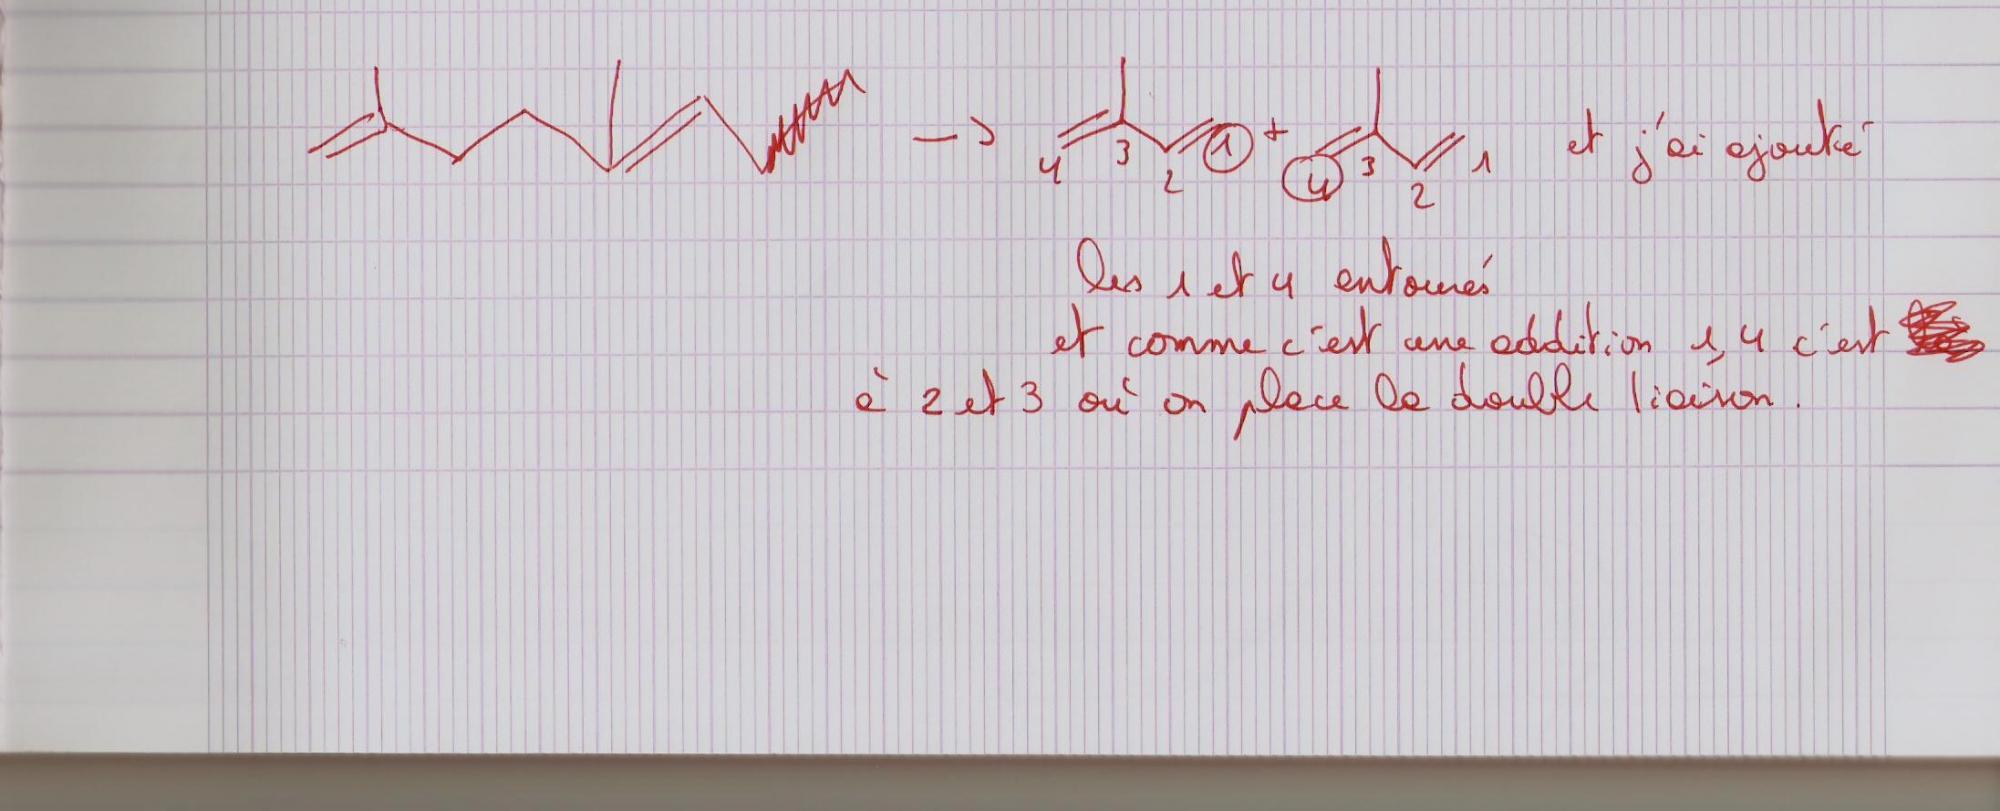 → 4 3 2 1 + 4 3 2 1 et j'ai ajouté
les 1 et 4 entourés
et comme c'est une addition 1,4 c'est
à 2 et 3 où on place la double liaison.